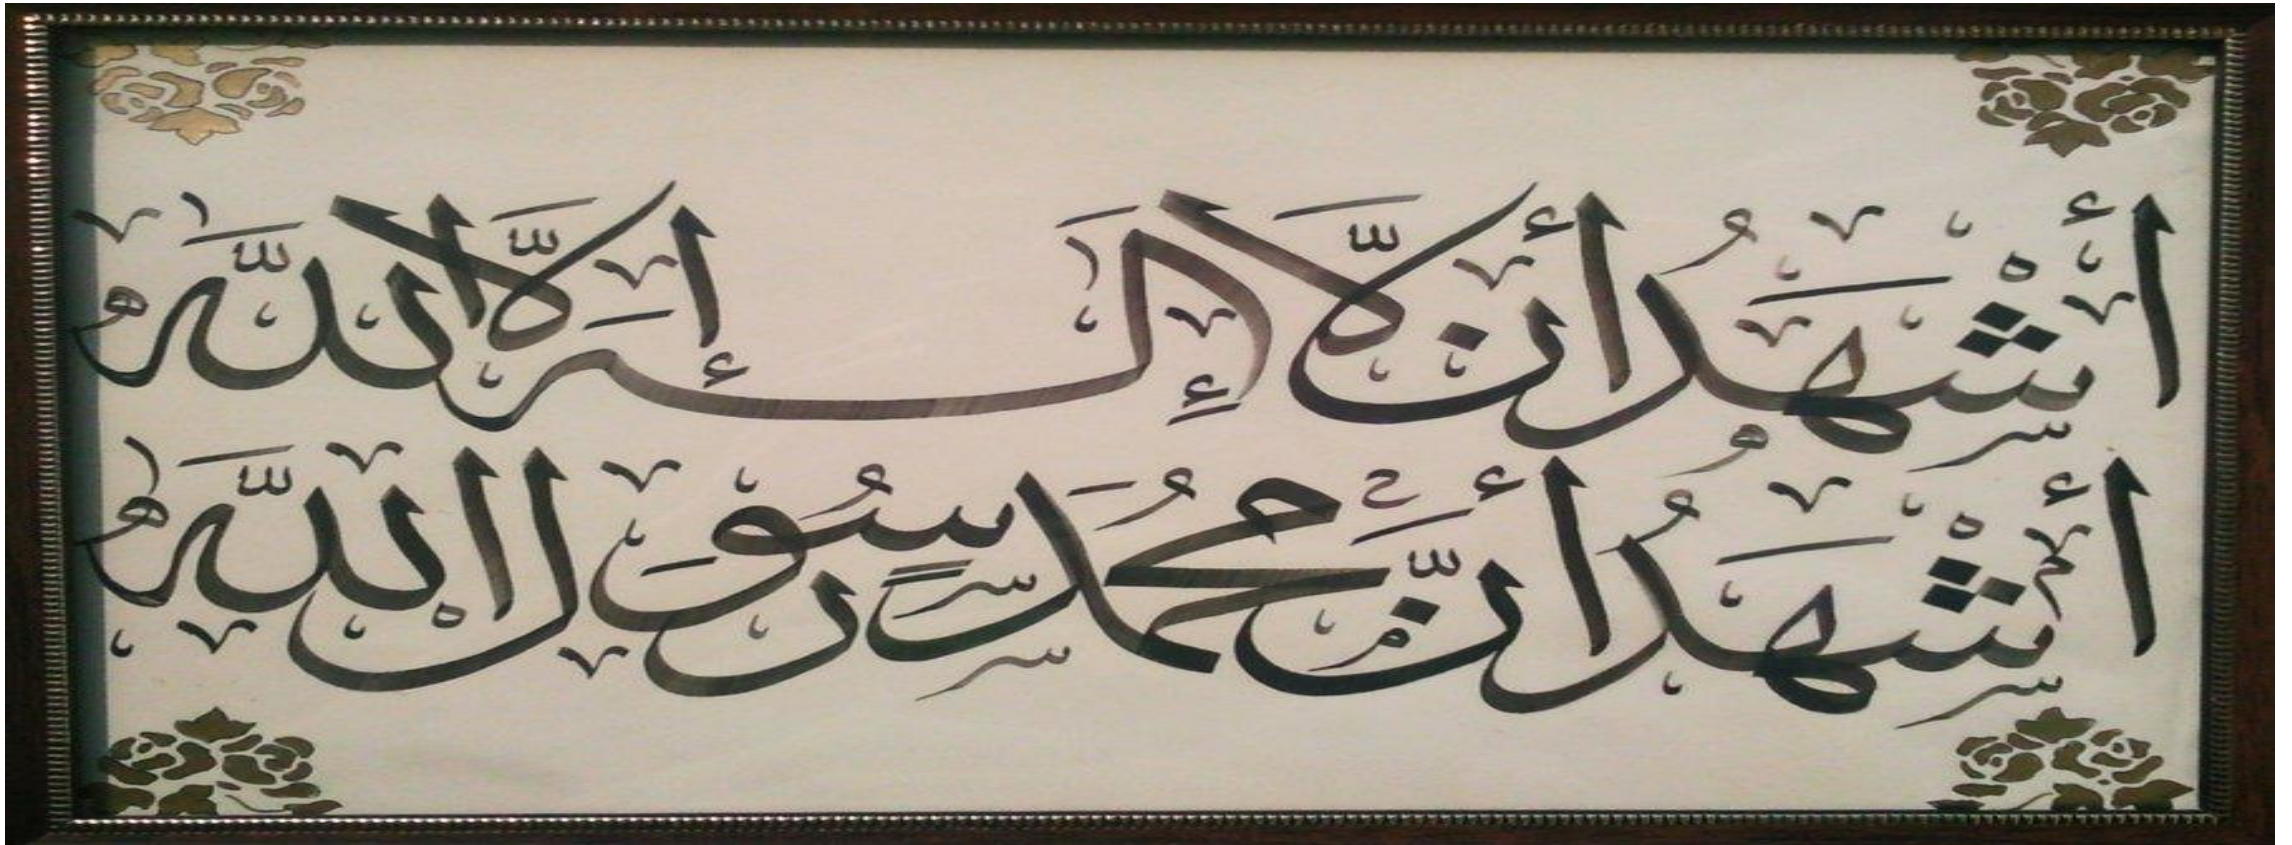 أَشْهَدُ أَنْ لَّا إِلَٰهَ إِلَّا اللّٰهُ
أَشْهَدُ أَنَّ مُحَمَّد رَسُوْلُ اللّٰهُ